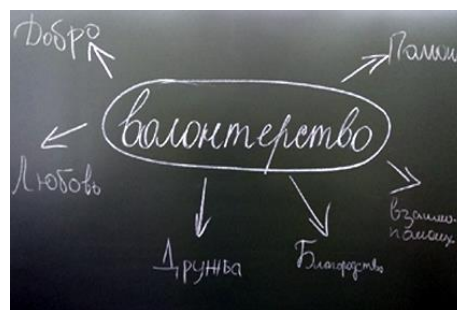 Добро
Помощ
волонтерство
Любовь
взаимо-
помощь
Дружба
Благородство